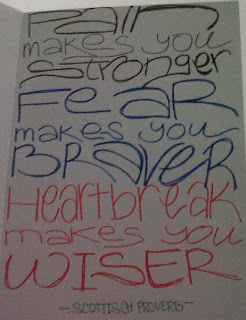 Pain
makes you
Stronger
FEAR
makes you
BRAVER
Heartbreak
makes you
WISER
- SCOTTISCH PROVERB -